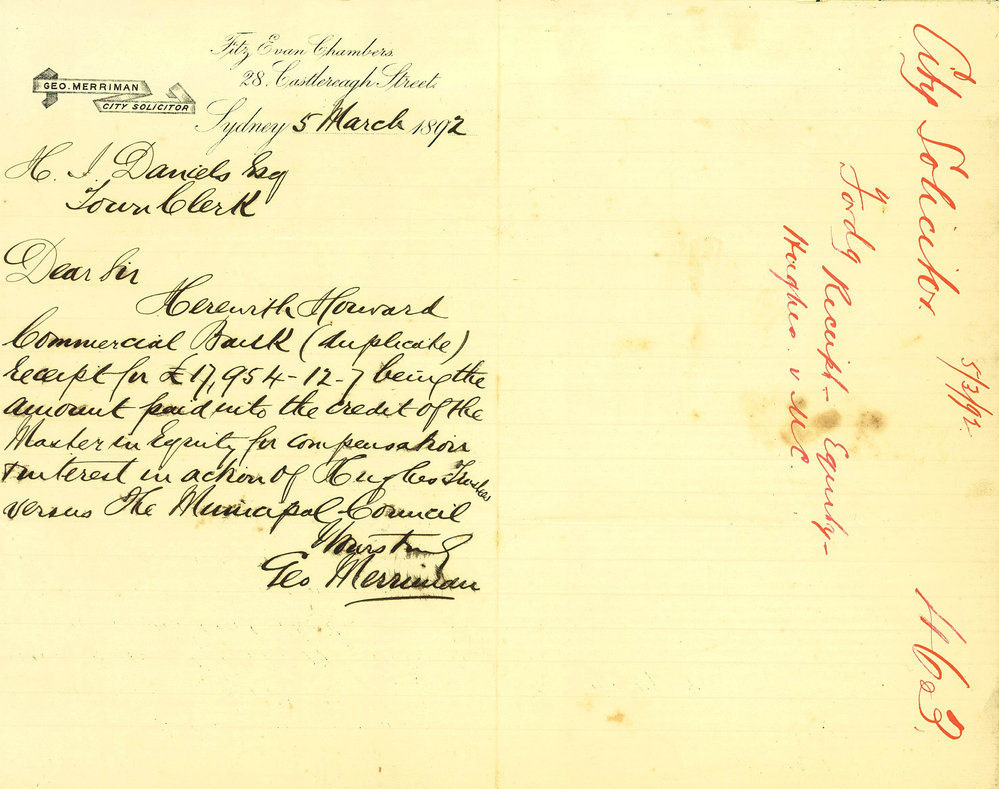 Fitz Evan Chambers.
28. Castlereagh Street.
GEO. MERRIMAN
CITY SOLICITOR
Sydney 5 March 1892
H. J. Daniels Esq
Town Clerk
Dear Sir
Herewith Forward
Commercial Bank (duplicate)
receipt for £17,954-12-7 being the
amount paid into the credit of the
Master in Equity for compensation
& interest in action of Hughes Trustees
versus The Municipal Council
Yours truly
Geo Merriman
City Solicitor.
5/3/92
Fordg Receipt - Equity -
Hughes v MC.